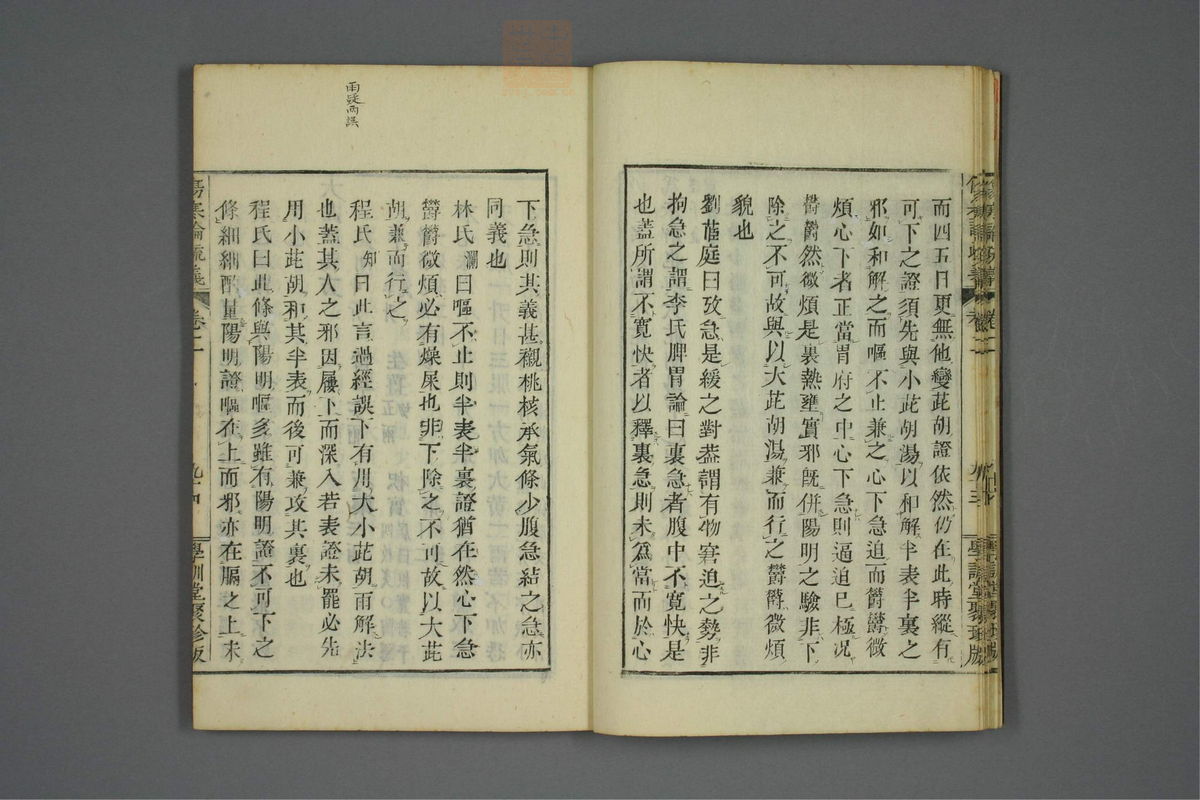 而四五日更無他變茈胡證依然仍在此時縱有
可下之證須先與小茈胡湯以和解半表半裏之
邪如和解之而嘔不止兼之心下急迫而欝欝微
煩心下者正當胃府之中心下急則逼迫已極况
欝欝然微煩是裏熱壅實邪既併陽明之驗非下
除之不可故與以大茈胡湯兼而行之欝欝微煩
貌也
劉茝庭曰攷急是緩之對葢謂有物窘迫之勢非
拘急之謂李氏脾胃論曰裏急者腹中不寬快是
也葢所謂不寬快者以釋裏急則未爲當而於心
下急則其義甚襯桃核承氣條少腹急結之急亦
同義也
林氏瀾曰嘔不止則半表半裏證猶在然心下急
欝欝微煩必有燥屎也非下除之不可故以大茈
胡兼而行之
程氏知曰此言過經誤下有用大小茈胡雨解法
也葢其人之邪因屢下而深入若表證未罷必先
用小茈胡和其半表而後可兼攻其裏也
程氏曰此條與陽明嘔多雖有陽明證不可下之
條細細酌量陽明證嘔在上而邪亦在膈之上未
傷寒論疏義 卷二 九十四 學訓堂聚珍版
雨疑兩誤